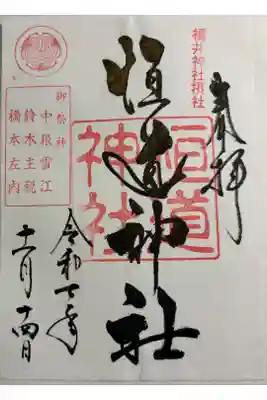 福井神社摂社
奉拝
恒道神社
恒道
神社
御祭神
中根雪江
鈴木主税
橋本左内
令和 年
十一月十四日